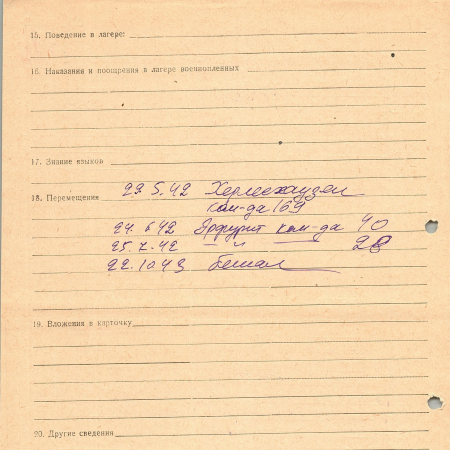 15. Поведение в лагере:
16. Наказания и поощрения в лагере военнопленных
17. Знание языков
18. Перемещения 29.5.42 Херлесхаузен
ком-да 169
24.6 42 Эрфурт ком-да 40
25.7.42 — " — 28
22.10 43 бежал
19. Вложения в карточку
20. Другие сведения